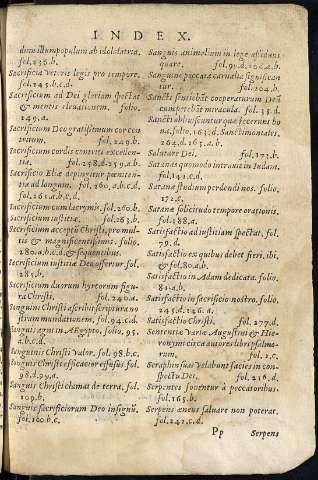 INDEX.
dum illum populum ab idololatria.
fol. 235. b.
Sacrificia veteris legis pro tempore.
fol. 245. b. c. d.
Sacrificium ad Dei gloriam spectat
& mentis eleuationem. folio.
249. a.
Sacrificium Deo gratissimum cor con
tritum. fol. 249. b.
Sacrificium cordis contriti excellen-
tia. fol. 258. d. 259. a. b.
Sacrificio Eliæ depingitur pœniten-
tia ad longum. fol. 260. a. b. c. d.
fol. 261. a. b. c. d.
Sacrificium cum lacrymis. fol. 260. b.
Sacrificium iustitiæ. fol. 263. b.
Sacrificium acceptũ Christi, pro mul-
tis & magnificentissimis. folio.
280. a. b. c. d. & sequentibus.
Sacrificium iustitiæ Deo offertur. fol.
285. b.
Sacrificium duorum hyrcorum figu-
ra Christi. fol. 240. a.
Sanguini Christi ascribit scriptura no
strum mundationem. fol. 94. c. d.
Sanguis agni in AEgypto. folio. 95.
a. b. c. d.
Sanguinis Christi valor. fol. 98. b. c.
Sanguis Christi efficacior effusus fol.
98. d. 99. a.
Sanguis Christi clamat de terra. fol.
109. b.
Sanguis sacrificiorum Deo insignũ.
fol. 100. b. c.
Sanguis animalium in lege aliquid
quare. fol. 99. d. 264. a. b.
Sanguine peccata carnalia significan
tur. fol. 204. b.
Sancti sensiebãt cooperaturum Deũ
cum petebãt miracula. fol. 33. d.
Sancti obliuiscuntur quæ fecerunt bo
na. folio. 163. d. Sanctimonales.
264. d. 265. a. b.
Salutare Dei. fol. 172. b.
Satanas quomodo intrauit in Iudam.
fol. 141. c. d.
Satanæ studium perdendi nos. folio.
172. c.
Satanæ solicitudo tempore orationis.
fol. 288. a.
Satisfactio ad iustitiam spectat. fol.
79. d.
Satisfactio ex quibus debet fieri, ibi,
& fol. 80. a. b.
Satisfactio in Adam dedicata. folio.
81. a. b.
Satisfactio in sacrificio nostro. folio.
245. d. 246. a.
Satisfactio Christi. fol. 277. d.
Sententiæ variæ Augustini & Hie-
ronymi circa autores libri psalmo-
rum. fol. 2. c.
Seraphin suas velabant facies in con-
spectu Dei. fol. 216. d.
Serpentes fouentur à peccatoribus.
fol. 165. b.
Serpens æneus saluare non poterat.
fol. 241. c. d.
Pp Serpens